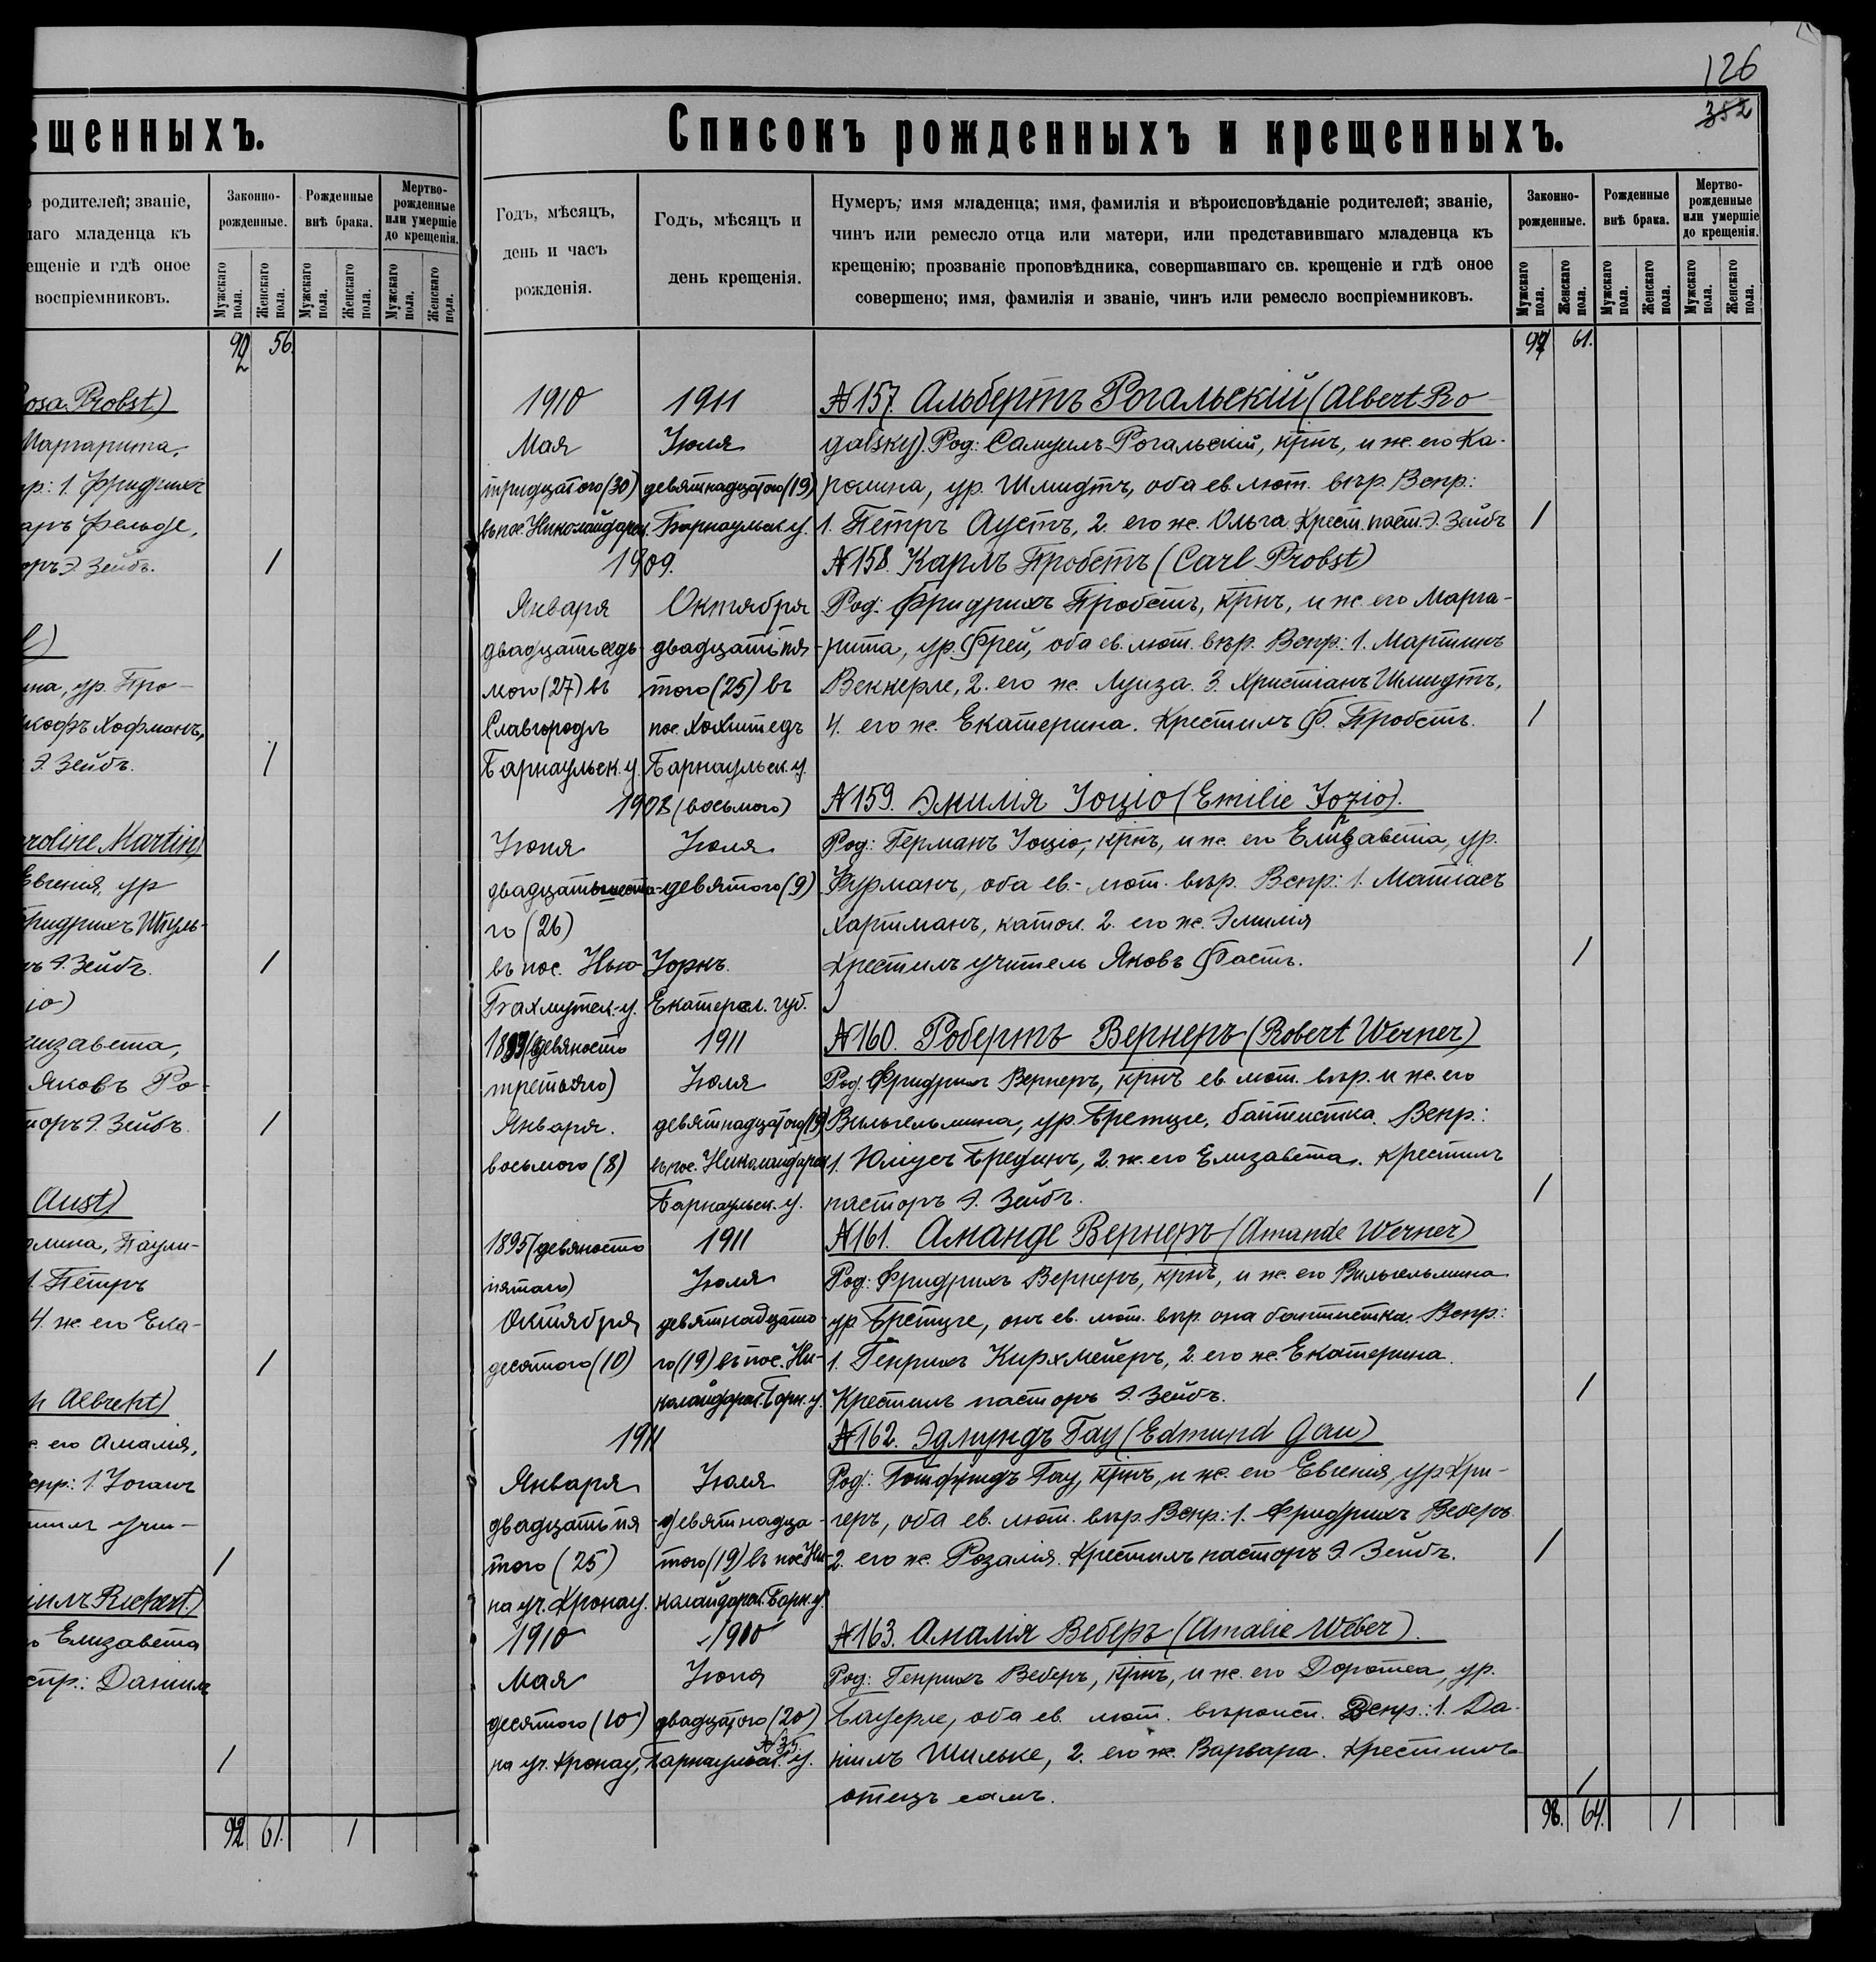 126
352
ещенныхъ.
родителей; званіе,
маго младенца къ
ещеніе и гдѣ оное
воспріемниковъ.
Законно-
рожденные.
Рожденные
внѣ брака.
Мертво-
рожденные
или умершіе
до крещенія.
Мужскаго пола.
Женскаго пола.
Мужскаго пола.
Женскаго пола.
Мужскаго пола.
Женскаго пола.
92 56.
osa Probst)
Маргарита,
пр: 1. Фридрихъ
оръ Э. Зейбъ. 1
на, ур. Про-
Хофманъ,
Э. Зейбъ. 1
aroline Martin)
Евгенія, ур
Фридрихъ Шуль-
Э. Зейбъ. 1
io)
лизавета,
Яковъ Ро-
торъ Э. Зейбъ 1
Aust)
лина, Паули-
1. Петръ
4. ж. его Ека-
1
h Albrecht)
его Амалія,
спр: 1. Іоганъ
тилъ учи-
1
Елизавета
спр: Даніилъ
1
92 61. 1
Списокъ рожденныхъ и крещенныхъ.
Годъ, мѣсяцъ,
день и часъ
рожденія.
Годъ, мѣсяцъ и
день крещенія.
Нумеръ; имя младенца; имя, фамилія и вѣроисповѣданіе родителей; званіе,
чинъ или ремесло отца или матери, или представившаго младенца къ
крещенію; прозваніе проповѣдника, совершавшаго св. крещеніе и гдѣ оное
совершено; имя, фамилія и званіе, чинъ или ремесло воспріемниковъ.
Законно-
рожденные.
Рожденные
внѣ брака.
Мертво-
рожденные
или умершіе
до крещенія.
Мужскаго пола.
Женскаго пола.
Мужскаго пола.
Женскаго пола.
Мужскаго пола.
Женскаго пола.
61.
1910 1911 №157. Альбертъ Рогальскій (Albert Ro
Мая Іюля galsky). Род: Самуилъ Рогальскій, крнъ, и ж. его Ка-
тридцатого (30) девятнадцатого (19) ролина, ур. Шмидтъ, оба ев. лют. вѣр. Вспр:
въ пос. Николайдорф. Барнаульск. у. 1. Петръ Аустъ, 2. его ж. Ольга. Крест. паст. Э. Зейбъ 1
1909. №158. Карлъ Пробстъ (Carl Probst)
Января Октября Род: Фридрихъ Пробстъ, крнъ, и ж. его Марга-
двадцать седь- двадцать пя- рита, ур. Фрей, оба ев. лют. вѣр. Вспр: 1. Мартинъ
мого (27) въ того (25) въ Веккерле, 2. его ж. Луиза. 3. Христіанъ Шмидтъ,
Славгородѣ пос. Хохштедъ 4. его ж. Екатерина. Крестилъ Ф. Пробстъ. 1
Барнаульск. у. Барнаульск. у.
1908 (восьмого) №159. Эмилія Іоціо (Emilie Jozio).
Іюня Іюля Род: Германъ Іоціо, крнъ, и ж. его Елизавета, ур.
двадцать шесто- девятого (9) Фурманъ, оба ев.-лют. вѣр. Вспр: 1. Матіасъ
го (26) Хартманъ, катол. 2. его ж. Эмилія
въ пос. Нью- Іоркъ. Крестилъ учитель Яковъ Фастъ. 1
Бахмутск. у. Екатерсл. губ.
1893 (девяносто 1911 №160. Робертъ Вернеръ (Robert Werner)
третьяго) Іюля Род: Фридрихъ Вернеръ, крнъ ев. лют. вѣр. и ж. его
Января. девятнадцатого (19) Вильгельмина, ур. Бретцге, баптистка. Вспр:
восьмого (8) въ пос. Николайдорф 1. Юліусъ Брединъ, 2. ж. его Елизавета. Крестилъ
Барнаульск. у. пасторъ Э. Зейбъ. 1
1895 (девяносто 1911 №161. Аманде Вернеръ (Amande Werner)
пятаго) Іюля Род: Фридрихъ Вернеръ, крнъ, и ж. его Вильгельмина
Октября девятнадцато- ур Бретцге, онъ ев. лют. вѣр. она баптистка. Вспр:
десятого (10) го (19) въ пос. Ни- 1. Генрихъ Кирхмейеръ, 2. его ж. Екатерина.
колайдорф. Барн. у. Крестилъ пасторъ Э. Зейбъ. 1
1911 №162. Эдмундъ Гау (Edmund Gau)
Января Іюля Род: Готфридъ Гау, крнъ, и ж. его Евгенія, ур Кри-
двадцать пя- девятнадца- геръ, оба ев. лют. вѣр. Вспр: 1. Фридрихъ Веберъ
того (25) того (19) въ пос Ни- 2. его ж. Розалія. Крестилъ пасторъ Э. Зейбъ. 1
на уч. Кронау. колайдорф. Барн. у.
1910 1910 №163. Амалія Веберъ (Amalie Weber).
Мая Іюня Род: Генрихъ Веберъ, крнъ, и ж. его Доротеа, ур.
десятого (10) двадцатого (20) Бауерле, оба ев. лют. вѣроисп. Вспр: 1. Да-
на уч. Кронау, Барнаульск. у. ніилъ Шильке, 2. его ж. Варвара. Крестилъ
отецъ самъ. 1
98. 64. 1